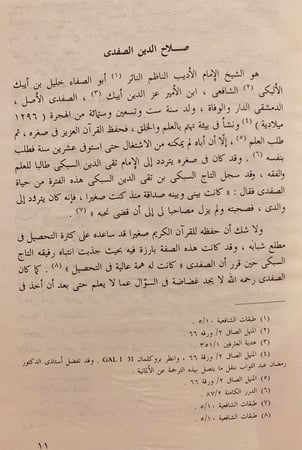 صلاح الدين الصفدى
هو الشيخ الإمام الأديب الناظم الناثر (١) أبو الصفاء خليل بن أيبك
الألبكى (٢) الشافعى ، ابن الأمير عز الدين أيبك (٣) ، الصفدى الأصل ،
الدمشقى الدار والوفاة ، ولد سنة ست وتسعين وستمائة من الهجرة ( ١٢٩٦
ميلادية ) (٤) ونشأ فى بيئة تهتم بالعلم والخلق ، فحفظ القرآن العزيز فى صغره ، ثم
طلب العلم (٥) ، إلا أن أباه لم يمكنه من الاشتغال حتى استوفى عشرين سنة فطلب
بنفسه (٦) . وقد كان فى صغره يتردد إلى الإمام تقى الدين السبكى طالبا للعلم
والفقه . وقد سجل التاج السبكى بن تقى الدين السبكى هذه الفترة من حياة
الصفدى فقال : « كانت بينى وبينه صداقة منذ كنت صغيرا ، فإنه كان يتردد إلى
والدى ، فصحبته ولم يزل مصاحبا لى إلى أن قضى نحبه » (٧)
ولا شك أن حفظه للقرآن الكريم صغيرا قد ساعده على كثرة التحصيل فى
مطلع شبابه . وقد كانت هذه الصفة بارزة فيه بحيث جذبت انتباه رفيقه التاج
السبكى حين قرر أن الصفدى « كانت له همة عالية فى التحصيل » (٨) . كما كان
الصفدى رحمه الله لا يجد غضاضة فى السؤال عما لا يعلم حتى بعد أن أخذ فى
(١) طبقات الشافعية ٥/١٠ .
(٢) المنهل الصافى ٢/ ورقة ٦٦ .
(٣) هدية العارفين ٣٥١/١ .
(٤) المنهل الصافى ٢/ ورقة ٦٦ . وانظر بروكلمان GAL I 31 . وقد تفضل أستاذى الدكتور
رمضان عبد التواب بنقل ما يتصل بهذه الترجمة عن الألمانية .
(٥) المنهل الصافى ٢/ ورقة ٦٦ .
(٦) الدرر الكامنة ٨٧/٢ .
(٧) طبقات الشافعية ٥/١٠ .
(٨) طبقات الشافعية ٥/١٠ .
١١